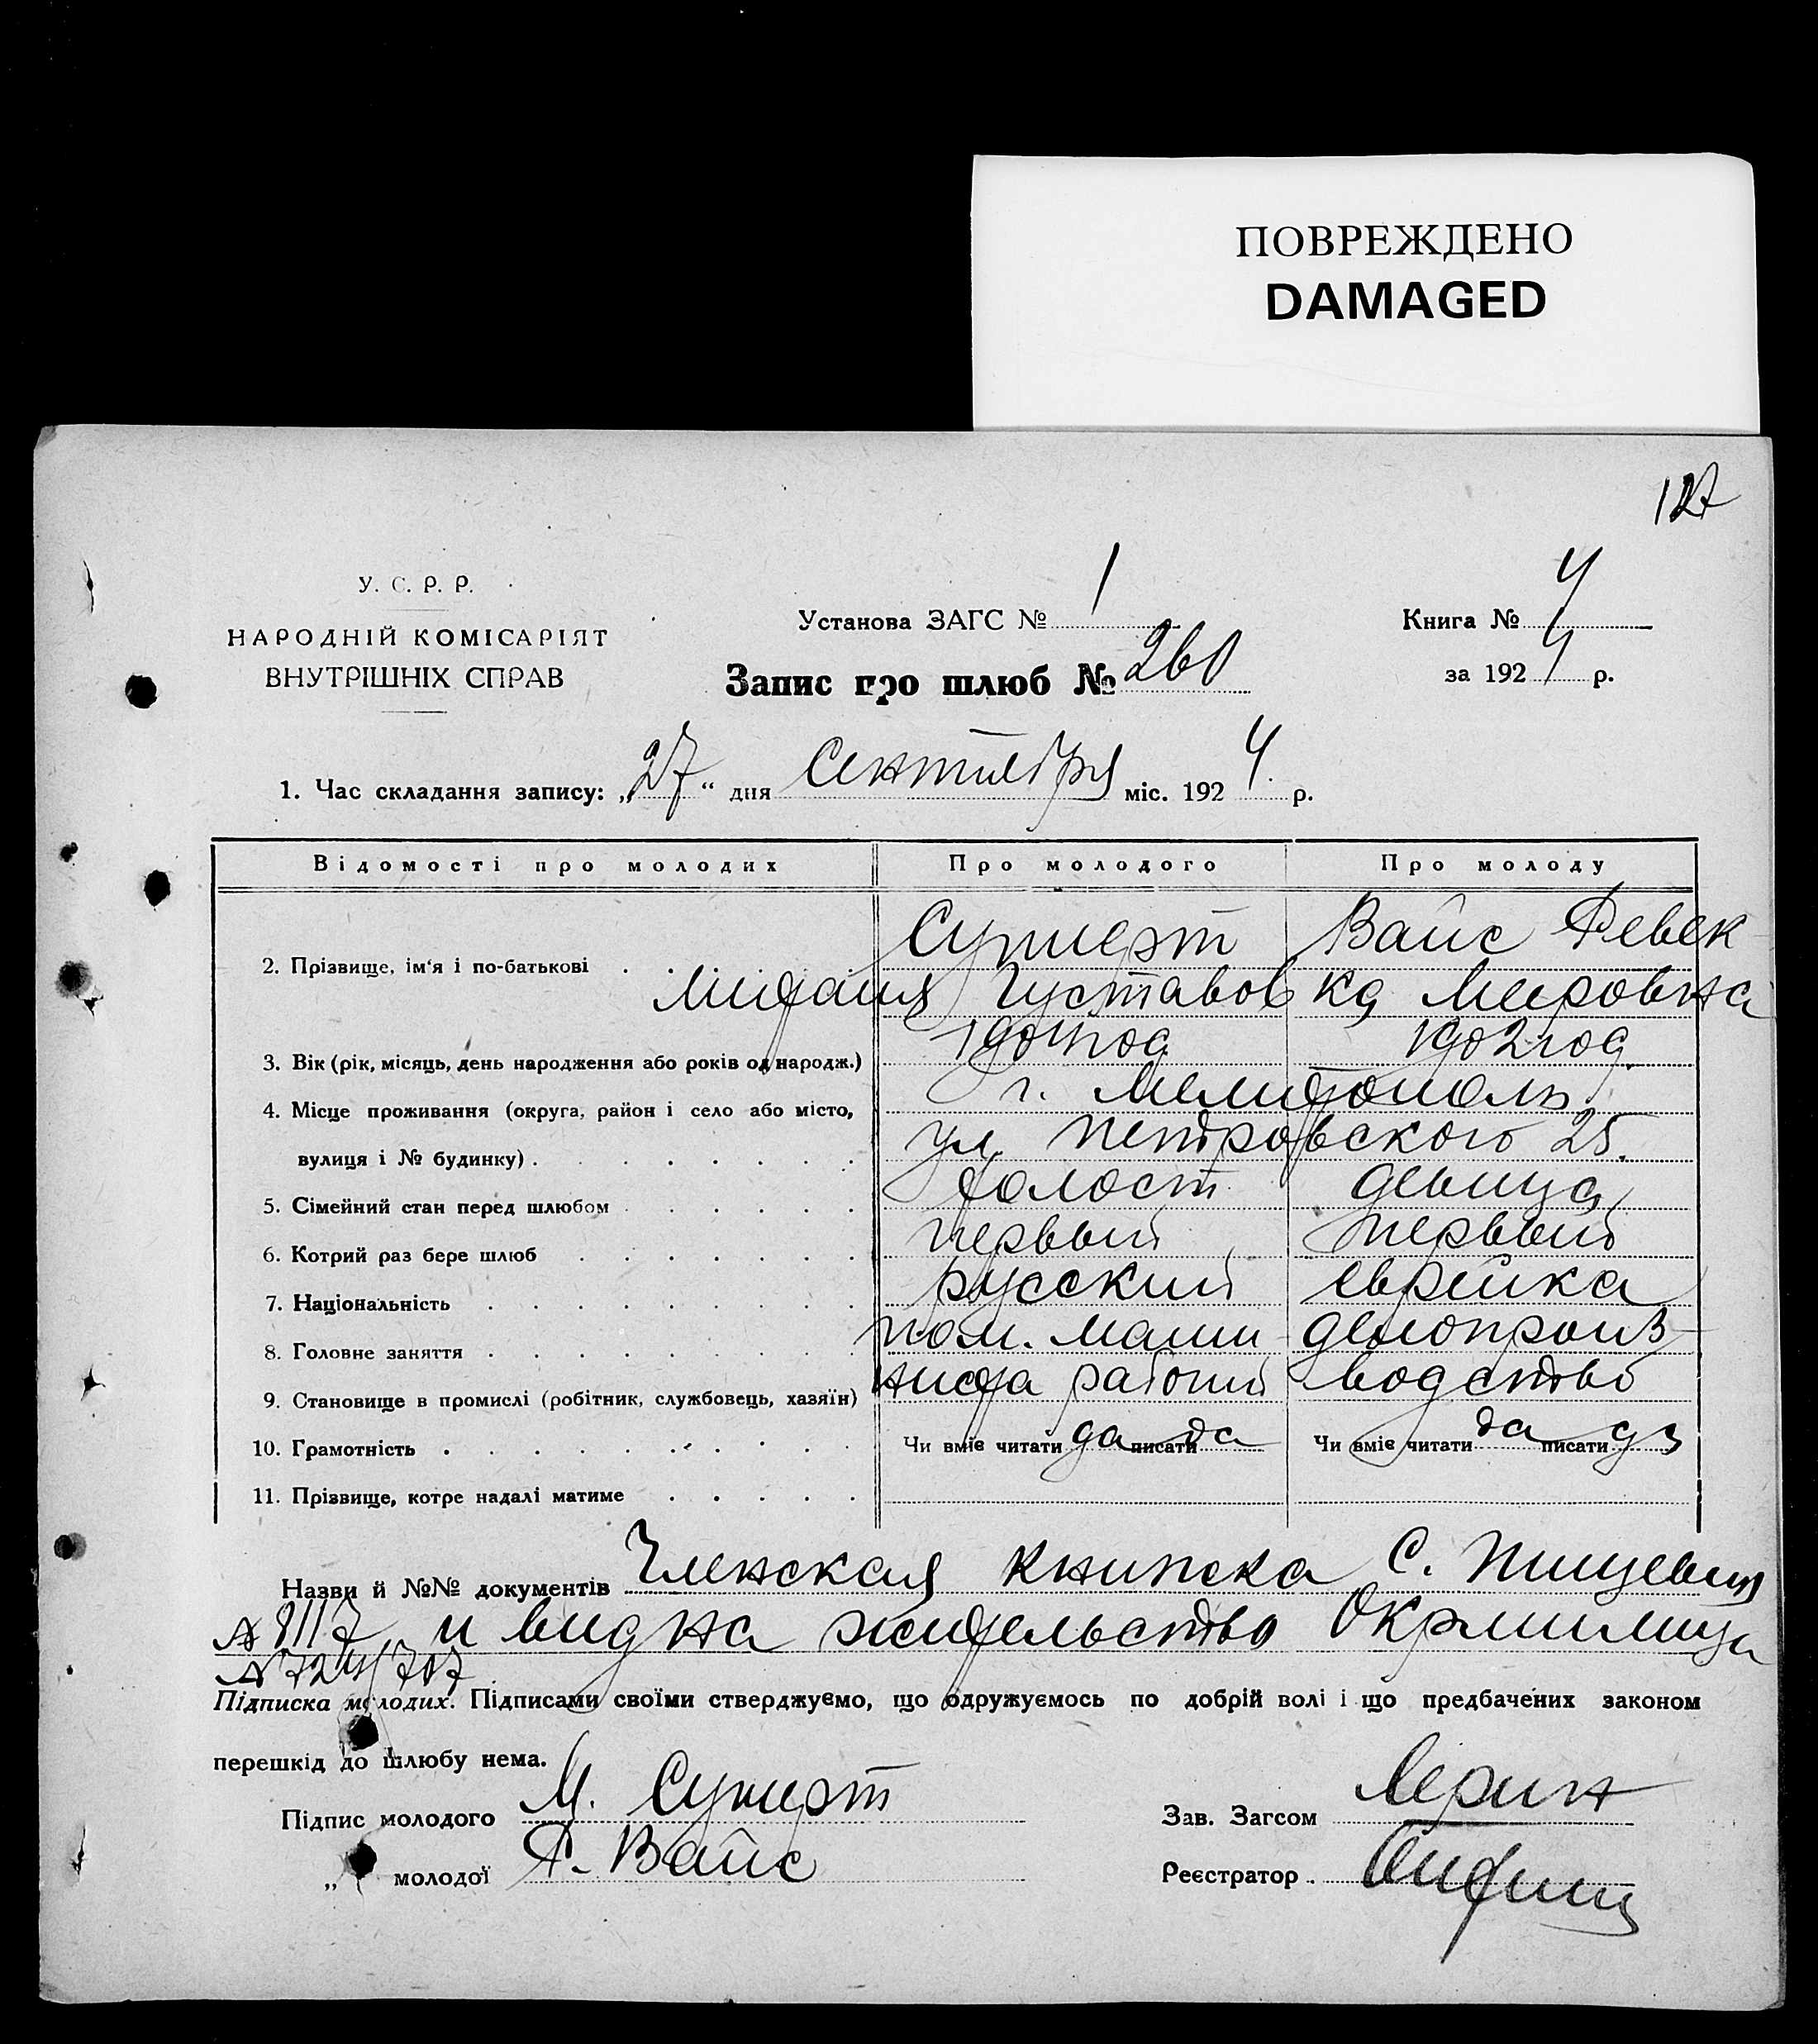 ПОВРЕЖДЕНО
DAMAGED
127
У. С. Р. Р.
НАРОДНІЙ КОМІСАРІЯТ
ВНУТРІШНІХ СПРАВ
Установа ЗАГС № 1
Книга № 4
Запис про шлюб № 260
за 1924 р.
1. Час складання запису: „27“ дня Сентября міс. 1924. р.
Відомості про молодих Про молодого Про молоду
2. Прізвище, ім'я і по-батькові Вайс Ревек-
Густавов ка Меировна
3. Вік (рік, місяць, день народження або років од народж.) 1904 год 1902 год
4. Місце проживання (округа, район і село або місто, г. Мелитополь.
вулиця і № будинку) ул. Петровского 25.
5. Сімейний стан перед шлюбом холост девица
6. Котрий раз бере шлюб первый первый
7. Національність русский еврейка
8. Головне заняття пом. маши- делопроиз-
9. Становище в промислі (робітник, службовець, хазяїн) ниста рабочий водство
10. Грамотність Чи вміє читати да писати да Чи вміє читати да писати да
11. Прізвище, котре надалі матиме
Назви й №№ документів Членская книжка С. Пищевик
№ 8117 и вид на жительство Окрмилиции
Підписка молодих. Підписами своїми стверджуємо, що одружуємось по добрій волі і що предбачених законом
перешкід до шлюбу нема.
Підпис молодого М.
Зав. Загсом
„ молодої Р. Вайс
Реєстратор